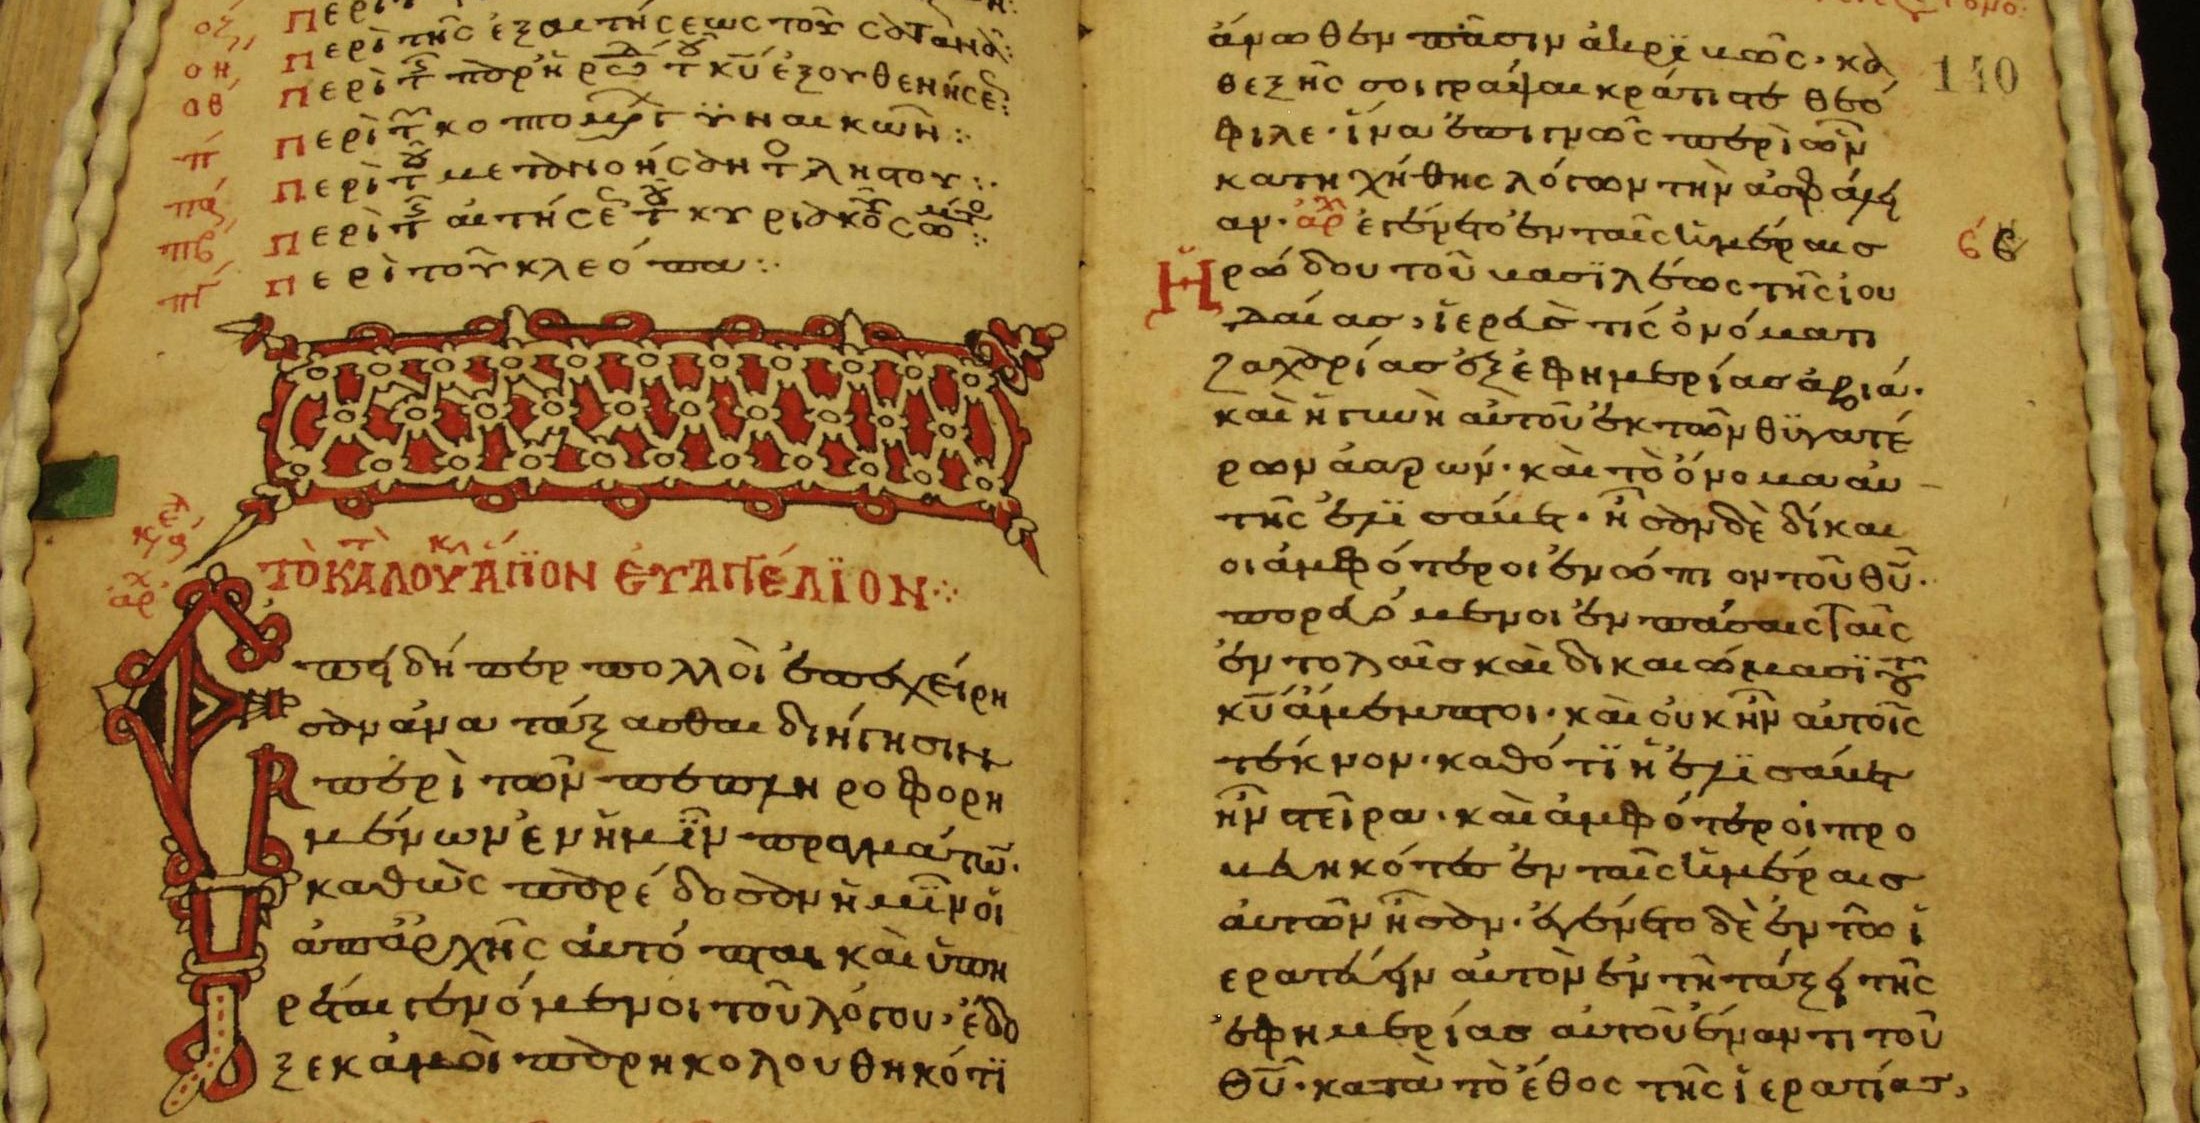 οη Περὶ τῆς ἐξαιτήσεως τοῦ σατανᾶ:
οθ Περὶ τ
π Περὶ τ κοπτομ γυναικῶν:
πα Περὶ τ μετανοήσαντ ληστου:
πβ Περὶ τ αιτήσε τ κυριακοῦ σω
πγ Περὶ τοῦ κλεόπα:
ΤΟ ΚΑ ΛΟΥ ΑΓΙΟΝ ΕΥΑΓΓΕΛΙΟΝ
Ἐπειδήπερ πολλοὶ ἐπεχείρη
σαν ἀναταξασθαι διήγησιν
περὶ τῶν πεπληροφορη
μένων ἐν ἡμῖν πραγμάτῶ·
καθὼς παρέδοσαν ἡμῖν οἱ
ἀπαρχῆς αυτόπται καὶ ὑπη
ρέται γενόμενοι τοῦ λόγου· ἔδο
ξε κἀμοὶ παρηκολουθηκότϊ
ἄνωθεν πᾶσιν ἀκριβῶς· κα
θεξῆς σοι γράψαι κράτιστε θεό
φιλε· ἵνα ἐπιγνῶς περὶ ὧν
κατηχήθης λόγων τὴν ἀσφάλει
αν· ἀρχ ἐγένετο ἐν ταῖς ἡμέραις
Ἡρώδου τοῦ βασϊλέως τῆς ἰου
δαίας, ἱερεύς τις ὀνόματι
ζαχαρίας ἐξ ἐφημερίας ἀβιά·
καὶ ἡ γυνὴ αὐτοῦ ἐκ τῶν θϋγατέ
ρων ἀαρών· καὶ τὸ ὄνομα αὐ
τῆς ἐλϊσάβετ· ἦσαν δὲ δίκαι
οι ἀμφότεροι ἐνώπιον τοῦ θῦ·
πορευόμενοι ἐν πάσαις ταῖς
ἐντολαῖς καὶ δικαιώμασϊ τοῦ
κῦ ἄμεμπτοι· καὶ οὐκ ἦν αὐτοῖς
τέκνον· καθότϊ ἡ ἐλϊσάβετ
ἦν στεῖρα· καὶ ἀμφότεροι προ
βεβηκότες ἐν ταῖς ἡμέραις
αὐτῶν ἦσαν· ἐγένετο δὲ ἐν τῶ ἱ
ερατεύειν αὐτὸν ἐν τῇ τάξει τῆς
ἐφημερίας αὐτοῦ ἔναντι τοῦ
θῦ· κατὰ τὸ ἔθος τῆς ἱερατίας,
140